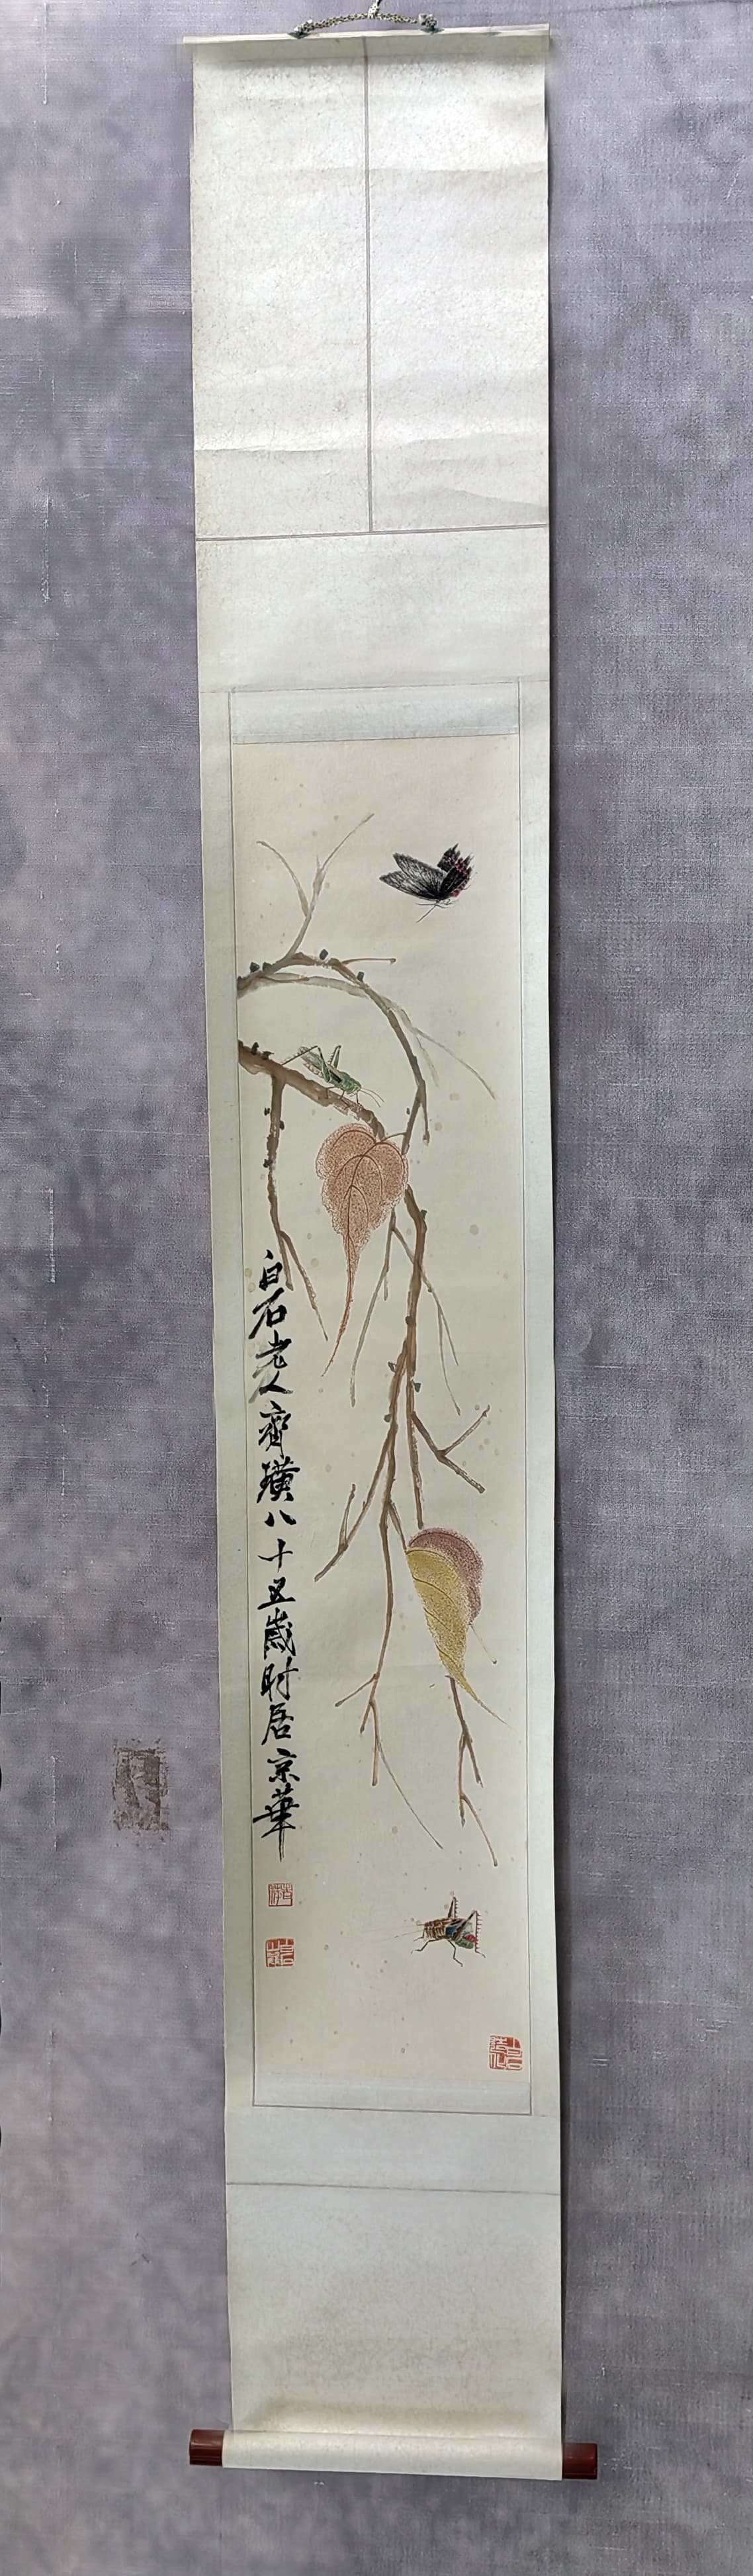 白石老人齊璜八十五歲時居京華